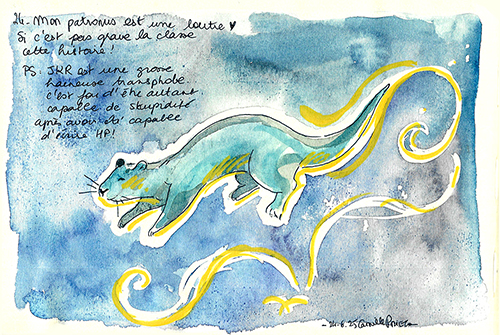 24. Mon patronus est une loutre ♥
Si c'est pas grave la classe
cette histoire!
PS: JKR est une grosse
haineuse transphobe.
c'est fou d'être autant
capable de stupidité
après avoir été capable
d'écrire HP!
-24.6.25 Camille